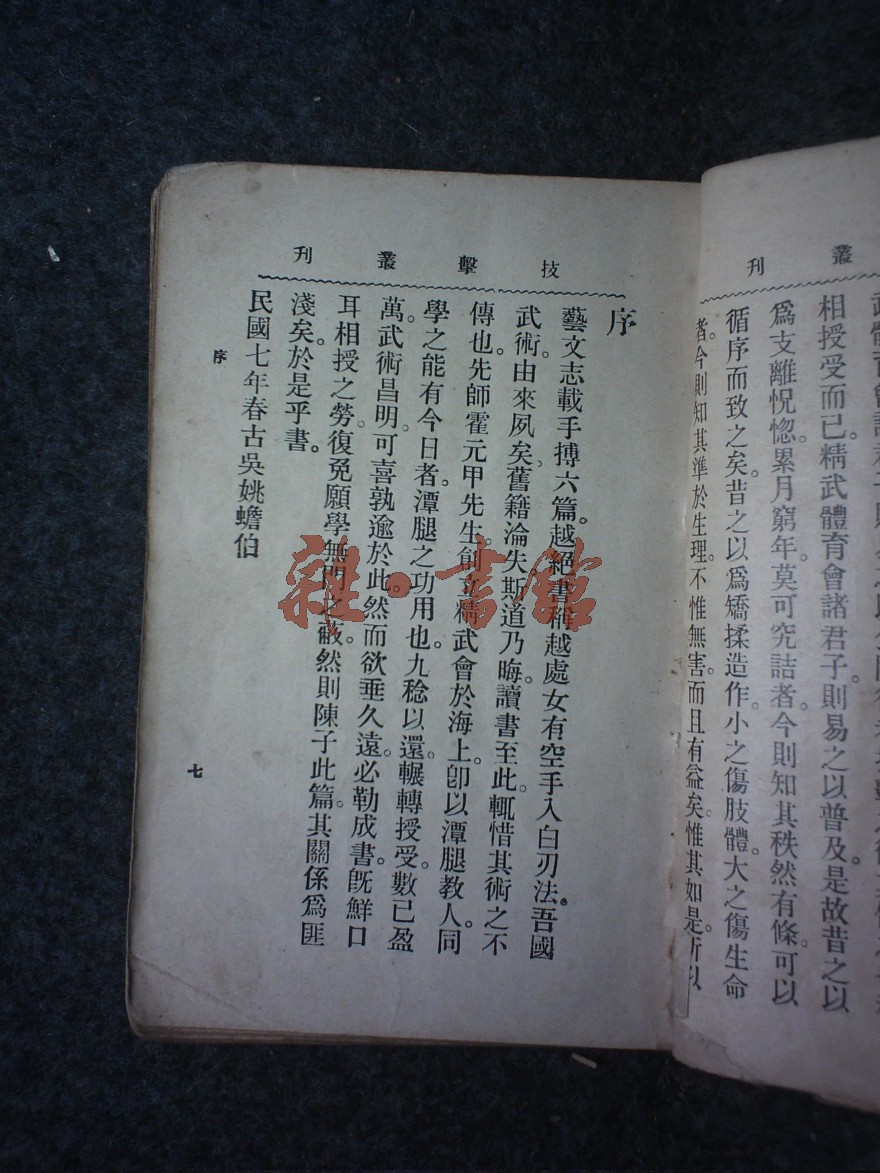 刊　叢
武體育會諸君子則
相授受而已。精武體育會諸君子則易之以普及。是故昔之以
爲支離怳惚。累月窮年。莫可究詰者。今則知其秩然有條。可以
循序而致之矣。昔之以爲矯揉造作。小之傷肢體。大之傷生命
者。今則知其準於生理。不惟無害。而且有益矣。惟其如是。所以
技擊叢刊
序
藝文志載手搏六篇。越絕書稱越處女有空手入白刃法。吾國
武術。由來夙矣。舊籍淪失。斯道乃晦。讀書至此。輒惜其術之不
傳也。先師霍元甲先生。創立精武會於海上。卽以潭腿教人。同
學之能有今日者。潭腿之功用也。九稔以還。輾轉授受。數已盈
萬。武術昌明。可喜孰逾於此。然而欲垂久遠。必勒成書。旣鮮口
耳相授之勞。復免願學無門之蔽。然則陳子此篇。其關係爲匪
淺矣。於是乎書。
民國七年春古吳姚蟾伯
序
七
雜·書館